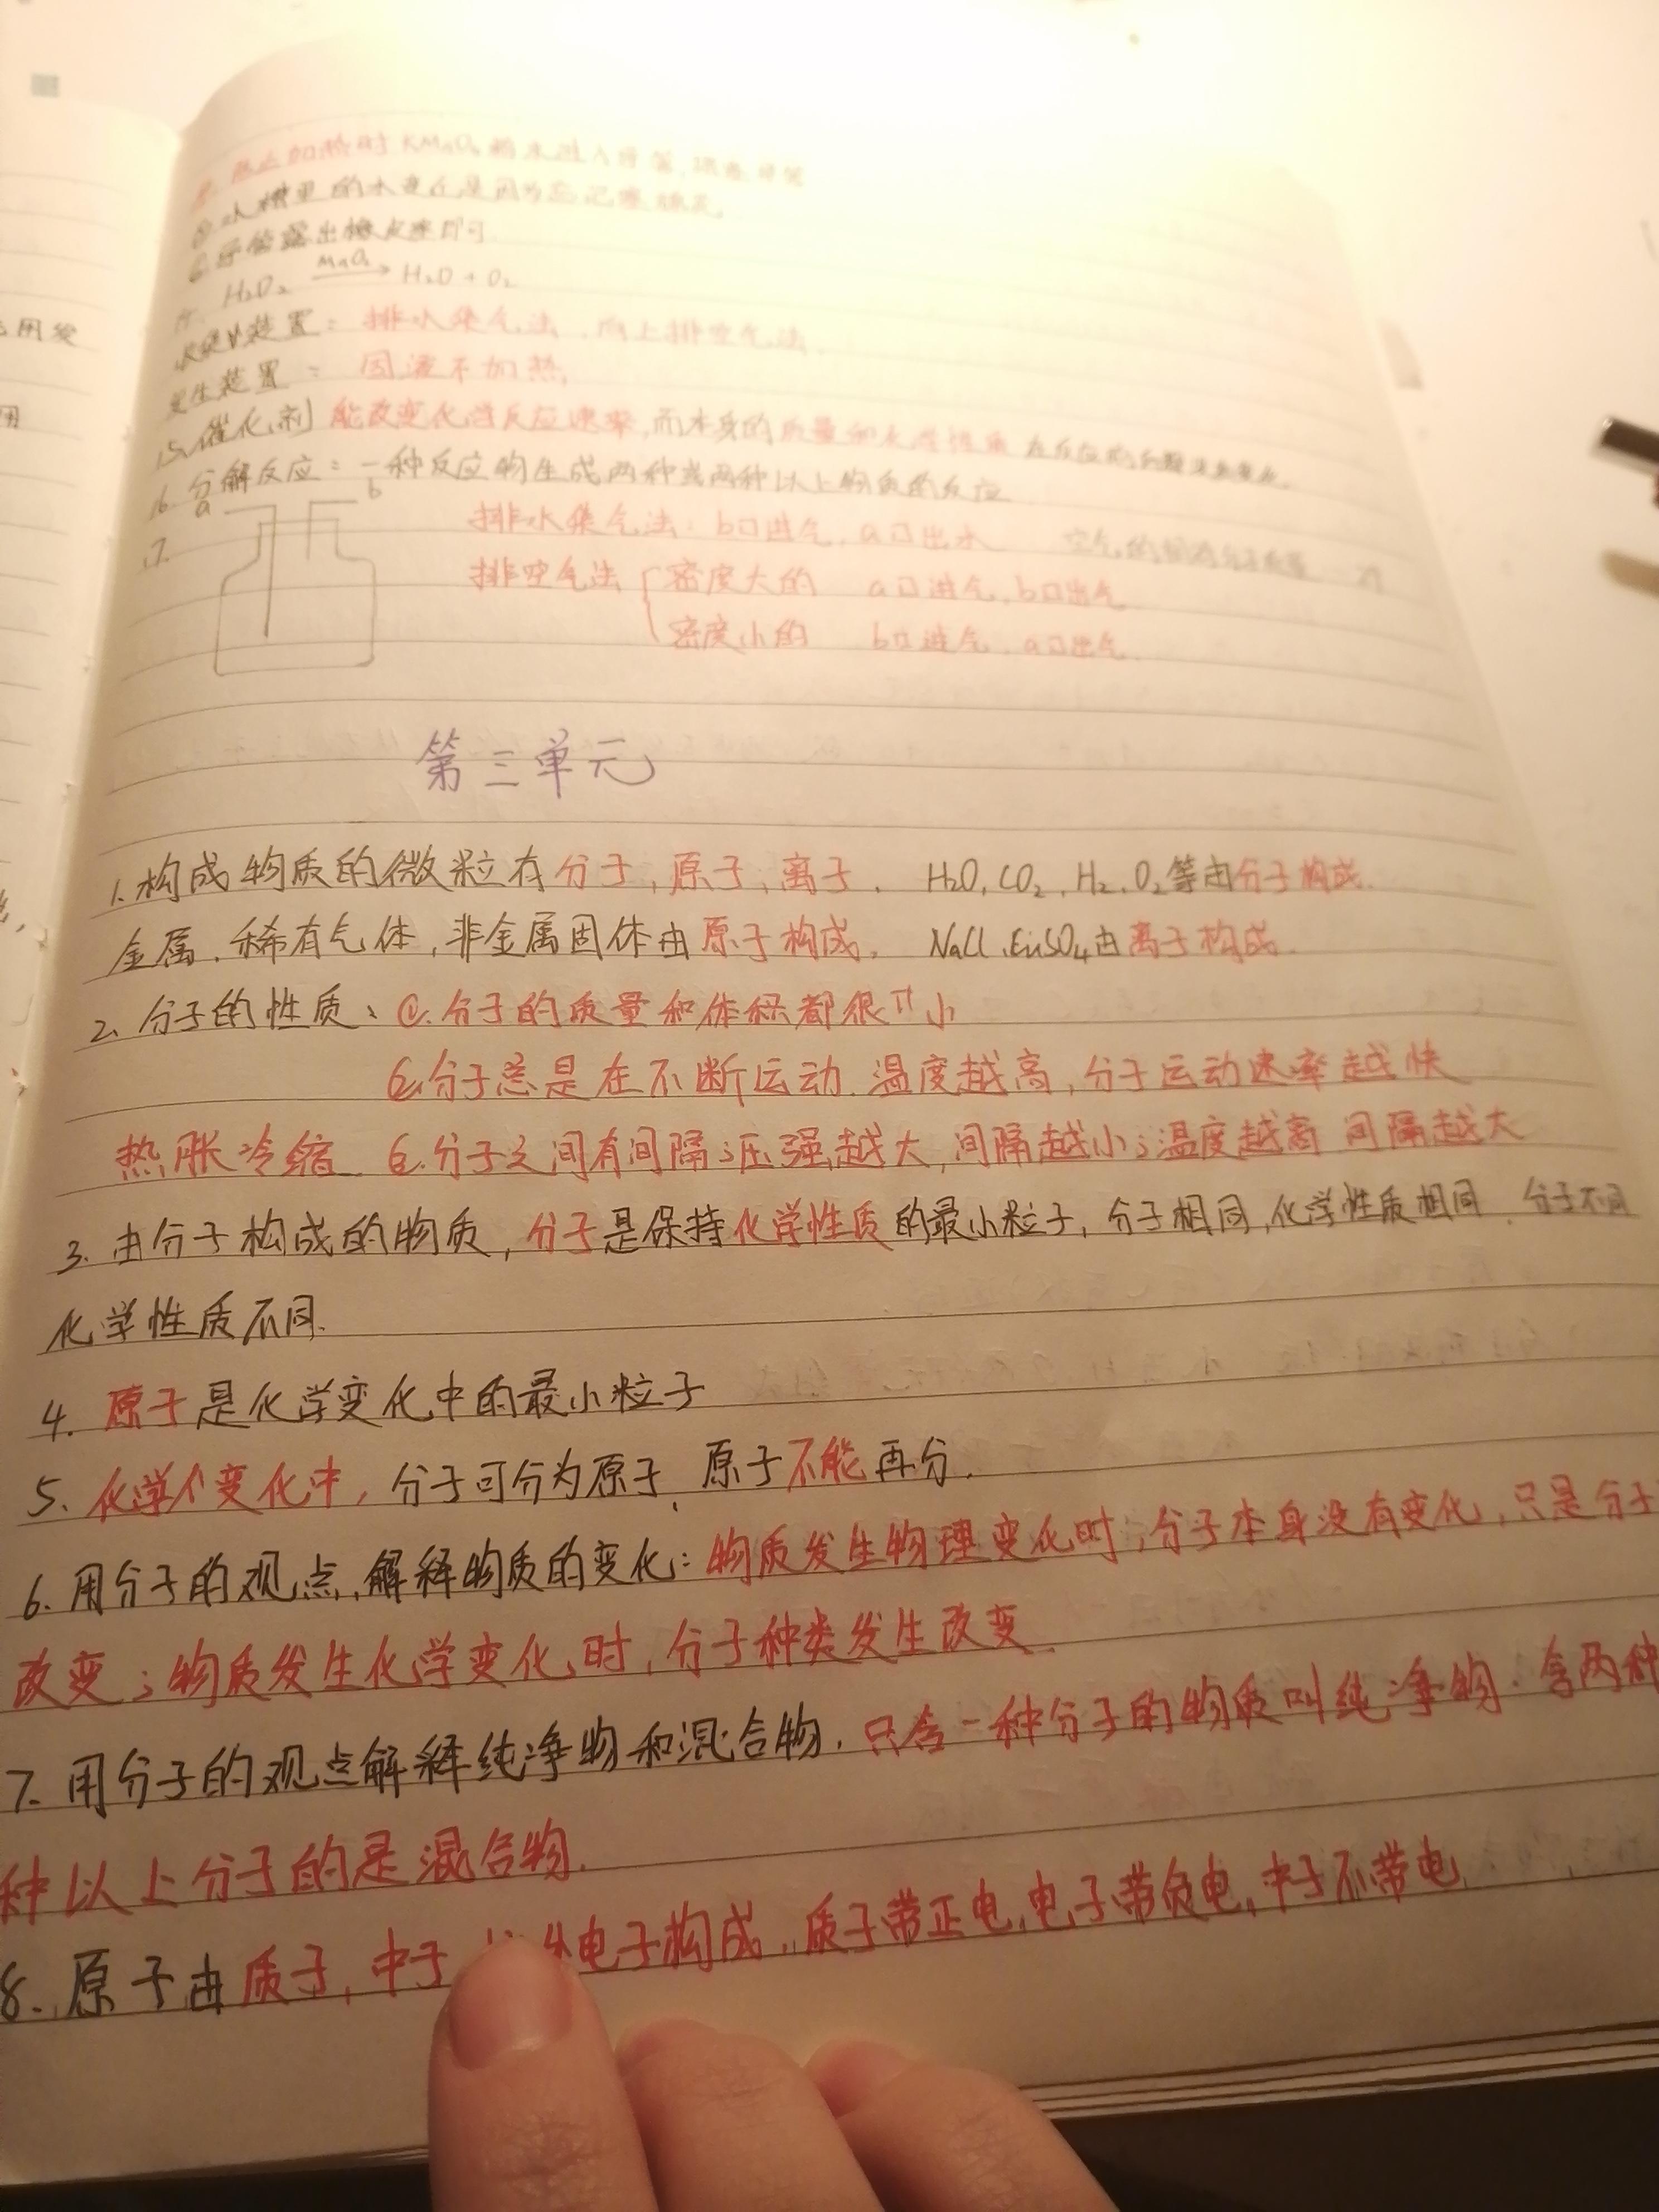 防止加热时KMnO₄粉末进入导管
导管露出橡皮塞即可
H₂O₂ —MnO₂→ H₂O + O₂
收集装置：排水集气法、向上排空气法
发生装置：固液不加热
15.催化剂 能改变化学反应速率,而本身的质量和化学性质在反应前后
16.分解反应：一种反应物生成两种或两种以上物质的反应
a b
17. 排水集气法：b口进气,a口出水 空气的
排空气法 密度大的 a口进气,b口出气
密度小的 b口进气,a口出气
第三单元
1.构成物质的微粒有分子,原子,离子. H₂O,CO₂,H₂,O₂等由分子构成.
金属.稀有气体,非金属固体由原子构成. NaCl,CuSO₄由离子构成.
2.分子的性质: ①.分子的质量和体积都很小
②.分子总是在不断运动.温度越高,分子运动速率越快
热胀冷缩 ③.分子之间有间隔;压强越大,间隔越小;温度越高 间隔越大
3.由分子构成的物质,分子是保持化学性质的最小粒子,分子相同,化学性质相同.分子不同
化学性质不同.
4.原子是化学变化中的最小粒子
5.化学变化中,分子可分为原子,原子不能再分.
6.用分子的观点.解释物质的变化:物质发生物理变化时,分子本身没有变化,只是分子
改变;物质发生化学变化时,分子种类发生改变.
7.用分子的观点解释纯净物和混合物.只含一种分子的物质叫纯净物.含两种
种以上分子的是混合物.
8.原子由质子,中子 电子构成.质子带正电,电子带负电,中子不带电
用发
用